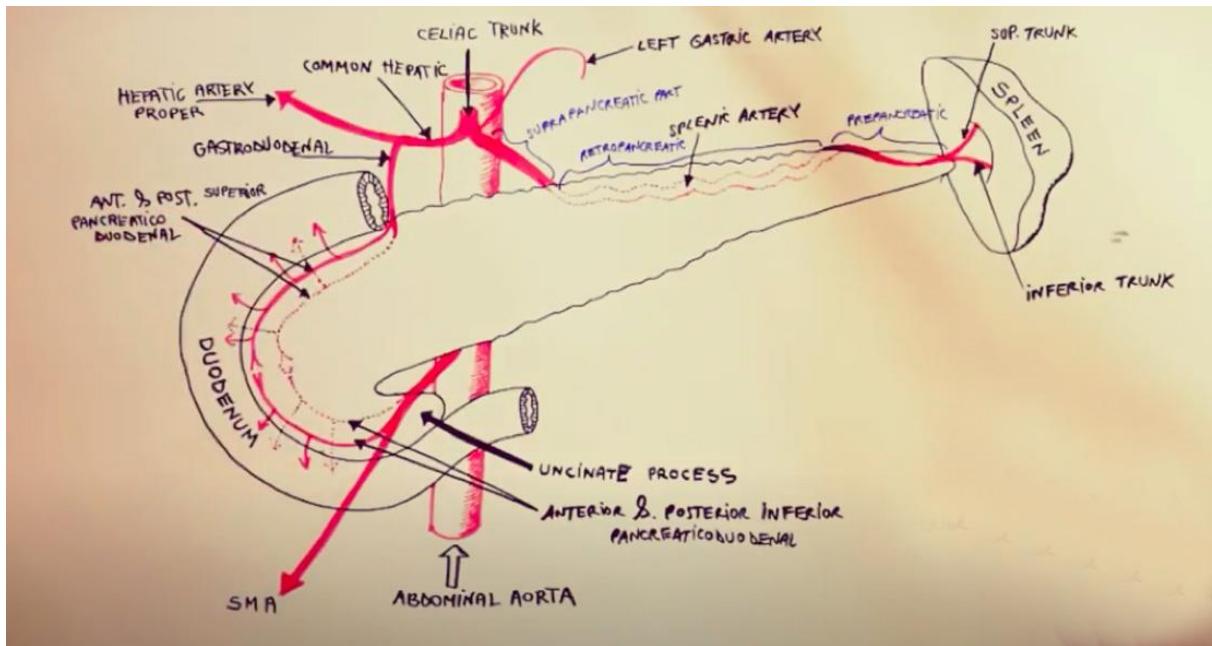 CELIAC TRUNK
LEFT GASTRIC ARTERY
SUP. TRUNK
COMMON HEPATIC
HEPATIC ARTERY
PROPER
SPLEEN
SUPRAPANCREATIC PART
SPLENIC ARTERY
PREPANCREATIC
GASTRODUODENAL
RETROPANCREATIC
ANT. & POST. SUPERIOR
PANCREATICO
DUODENAL
INFERIOR TRUNK
DUODENUM
UNCINATE PROCESS
ANTERIOR & POSTERIOR INFERIOR
PANCREATICODUODENAL
SMA
ABDOMINAL AORTA